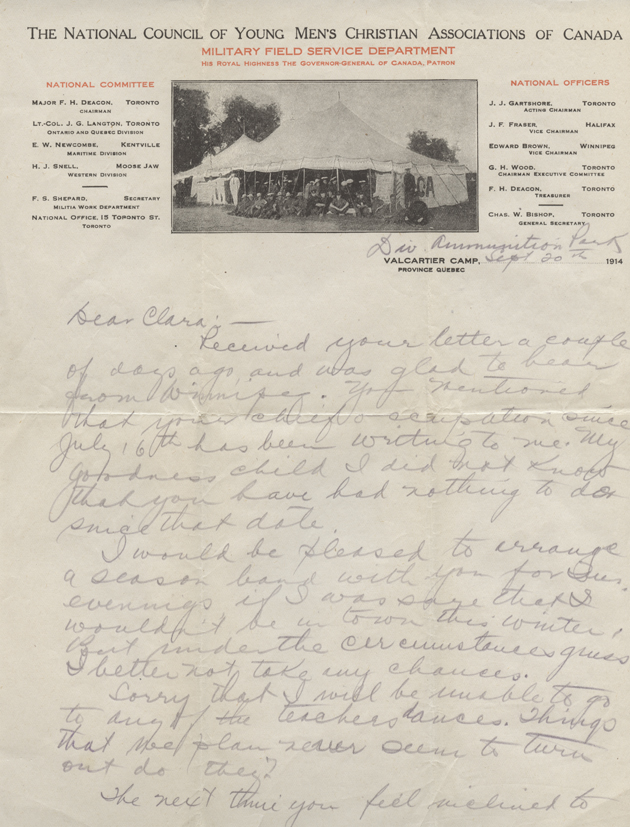 THE NATIONAL COUNCIL OF YOUNG MEN'S CHRISTIAN ASSOCIATIONS OF CANADA
MILITARY FIELD SERVICE DEPARTMENT
HIS ROYAL HIGHNESS THE GOVERNOR-GENERAL OF CANADA, PATRON
NATIONAL COMMITTEE
MAJOR F. H. DEACON, TORONTO
CHAIRMAN
LT.-COL. J. G. LANGTON, TORONTO
ONTARIO AND QUEBEC DIVISION
E. W. NEWCOMBE, KENTVILLE
MARITIME DIVISION
H. J. SNELL, MOOSE JAW
WESTERN DIVISION
F. S. SHEPARD, SECRETARY
MILITIA WORK DEPARTMENT
NATIONAL OFFICE, 15 TORONTO ST.
TORONTO
NATIONAL OFFICERS
J. J. GARTSHORE, TORONTO
ACTING CHAIRMAN
J. F. FRASER, HALIFAX
VICE CHAIRMAN
EDWARD BROWN, WINNIPEG
VICE CHAIRMAN
G. H. WOOD, TORONTO
CHAIRMAN EXECUTIVE COMMITTEE
F. H. DEACON, TORONTO
TREASURER
CHAS. W. BISHOP, TORONTO
GENERAL SECRETARY
CA
Div. Ammunition Park
VALCARTIER CAMP, Sept 20th 1914
PROVINCE QUEBEC
Dear Clara:—
Received your letter a couple
of days ago and was glad to hear
from Winnipeg. You mentioned
that your chief occupation since
July 16th has been writing to me. My
goodness child I did not know
that you have had nothing to do
since that date.
I would be pleased to arrange
a season band with you for Sun.
evenings if I was sure that I
wouldn't be in town this winter,
But under the circumstances guess
I better not take any chances.
Sorry that I will be unable to go
to any of the teachers dances. Things
that we plan never seem to turn
out do they?
The next time you feel inclined to